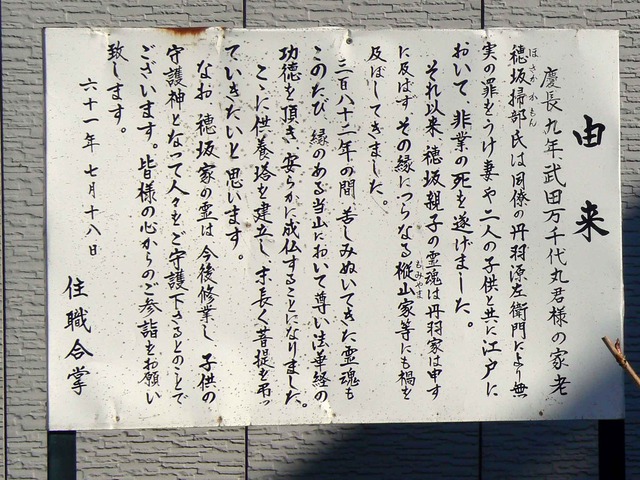 由来
慶長九年、武田万千代丸君様の家老
穂坂掃部氏は同僚の丹羽源左衛門により無
ほさかかもん
実の罪をうけ妻や二人の子供と共に江戸に
おいて、非業の死を遂げました。
それ以来、穂坂親子の霊魂は丹羽家は申す
に及ばず その縁につらなる樅山家等にも禍を
もみやま
及ぼしてきました。
三百八十二年の間 苦しみぬいてきた霊魂も
このたび 縁のある当山において尊い法華経の
功徳を頂き 安らかに成仏することになりました。
ここに供養塔を建立し 末長く菩提を弔っ
ていきたいと思います。
なお 穂坂家の霊は 今後修業し 子供の
守護神となって人々をご守護下さるとのことで
ございます。皆様の心からのご参詣をお願い
致します。
六十一年 七月十八日
住職合掌